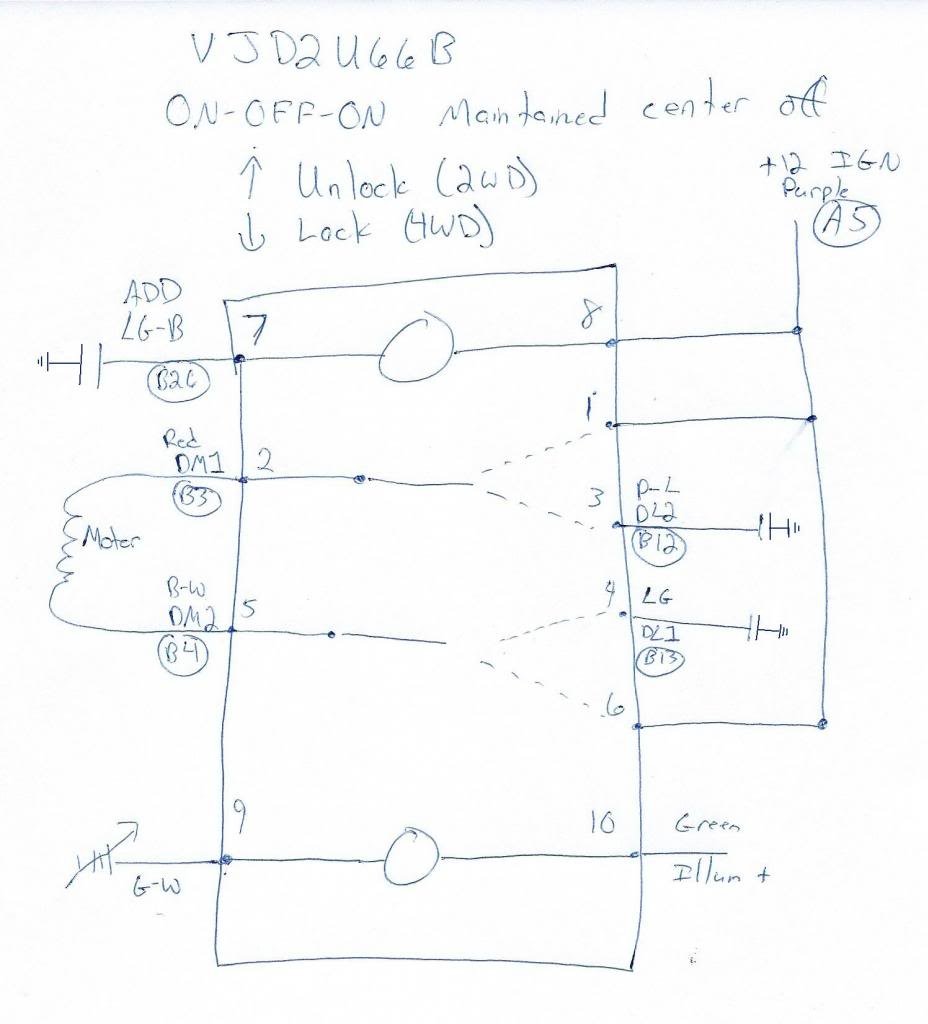 VJD2U66B
ON-OFF-ON Maintained center off
↑ Unlock (2WD)
↓ Lock (4WD)
+12 IGN
Purple
A5
ADD
LG-B
B26
7
8
1
Red
DM1
B3
2
3
P-L
DL2
B12
Motor
B-W
DM2
B4
5
4
LG
DL1
B13
6
9
10
Green
Illum +
G-W